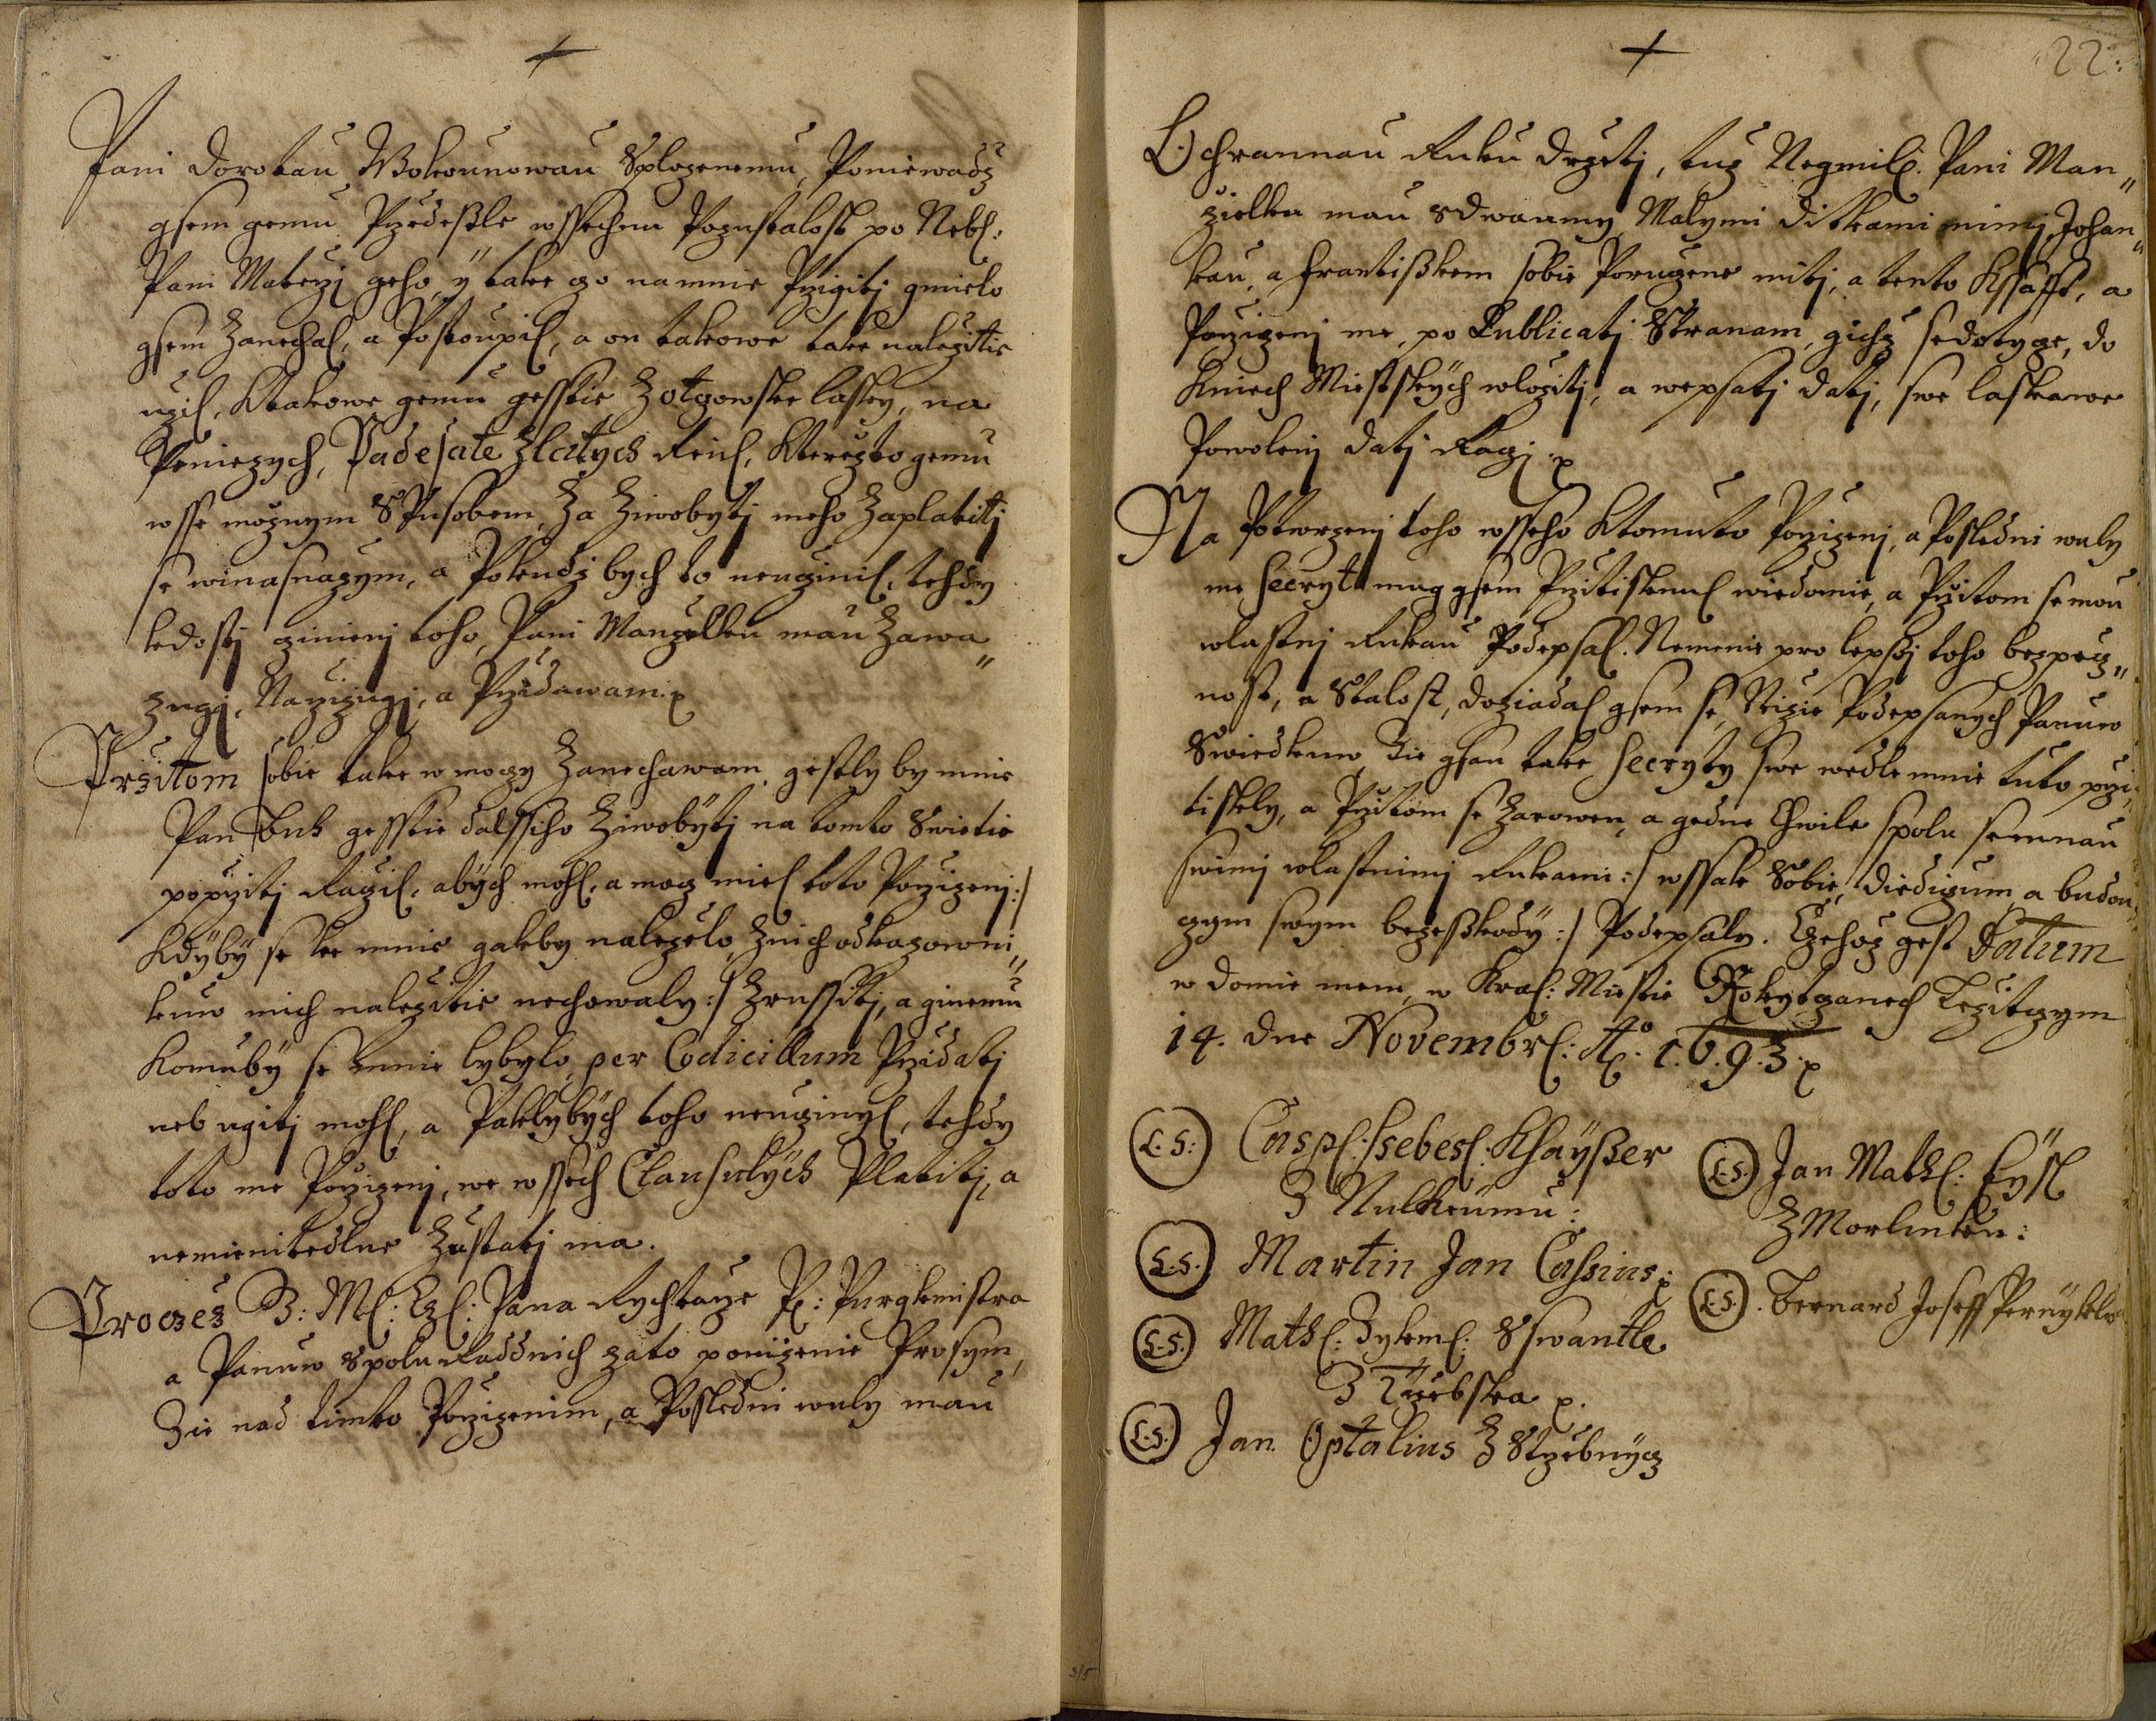 Pani Dorotau Wokaunowau Splozenemu, Poniewadz
gsem gemu Przedessle wssechnu Pozustalost po Neb:
Pani Materzj geho, y take zo na mnie Przigitj gmielo
gsem Zanechal, a Postaupil, a on takowe take nalezitie
uzil, Ktakowe gemu gesstie Zotzowske lasky, na
Peniezych, Padesate Zlatych Rein, Kterezto gemu
wsse moznym Spusobem, Za Ziwobytj meho Zaplatitj
se winasnazym, a Pokudz bych to neuczinil, tehdy
kdosti czinienj toho, Pani Manzelku mau Zawa„
zugj, Narzizugj, a Przidawam.
Przitom sobie take w moczy Zanechawam, gestly by mnie
Pan Buh gesstie dalssiho Ziwobytj na tomto Swietie
poprzitj Raczil, abych mohl, a mocz miel toto Porzizenj :/
Kdyby se ke mnie gakby nalezelo, Znich odkazowni„
kuw mich nalezitie nechowaly :/ Zrussitj, a ginemu
Komuby se mnie lybylo, per Codicillum Przidatj
neb ugitj mohl, a Paklybych toho neuczinyl, tehdy
toto me Porzizenj, we wssech Clausulych Platitj, a
nemienitedlne Zustatj ma.
Proczez B: Ml: Cz: Pana Rychtarze P: Purgkmistra
a Panuw Spolu Raddnich zato ponizenie Prosym,
Zie nad timto Porzizenim, a Posledni wuly mau
22.
Ochrannau Ruku Drzetj, tuz Negmil: Pani Man„
zielku mau sdwaumy Malymi Ditkami mimj, Johan„
kau, a Frantisskem sobie Poruczene mitj, a tento Kssafft, a
Porzizenj me, po Publicatj Stranam, gichz sedotycze, do
Knieh Miestskych wlozitj, a wepsatj datj, swe laskawe
Powolenj datj Raczj.
Na Potwrzenj toho wsseho Ktomuto Porzizenj, a Posledni wuly
me Secryt mug gsem Przitisknul wiedomie, a Przitom se mou
wlastnj Rukau Podepsal. Nemenie pro lepssj toho bezpecz„
nost, a Stalost, doziadal gsem se, Nizie Podepsanych Panuw
Swiedkuw Zie gsau take Secryty swe wedle mnie tuto przi„
tiskly, a Przitom se Zarowen, a gedne Chwile spolu semnau
swimj wlastnimj Rukami :/ wssak Sobie, Diediczum, a budau„
czym swym bezesskody :/ Podepsaly. Czehoz gest Datum
w Domie mem, w Kral: Miestie Rokytzanech Lezitczym
14. dne Novembr: Ao. 1.6.9.3.
L.S: Casp: Sebes: Khaysser
Z Nulkeumu:
L.S. Martin Jan Cassius
L.S. Math: Zykm: Sswantle
Z Trzebska
L.S. Jan Optalius Z Strzebnycz
L.S. Jan Math: Eysl
Z Morlinku:
L.S. Bernard Joseff Pernykl
315